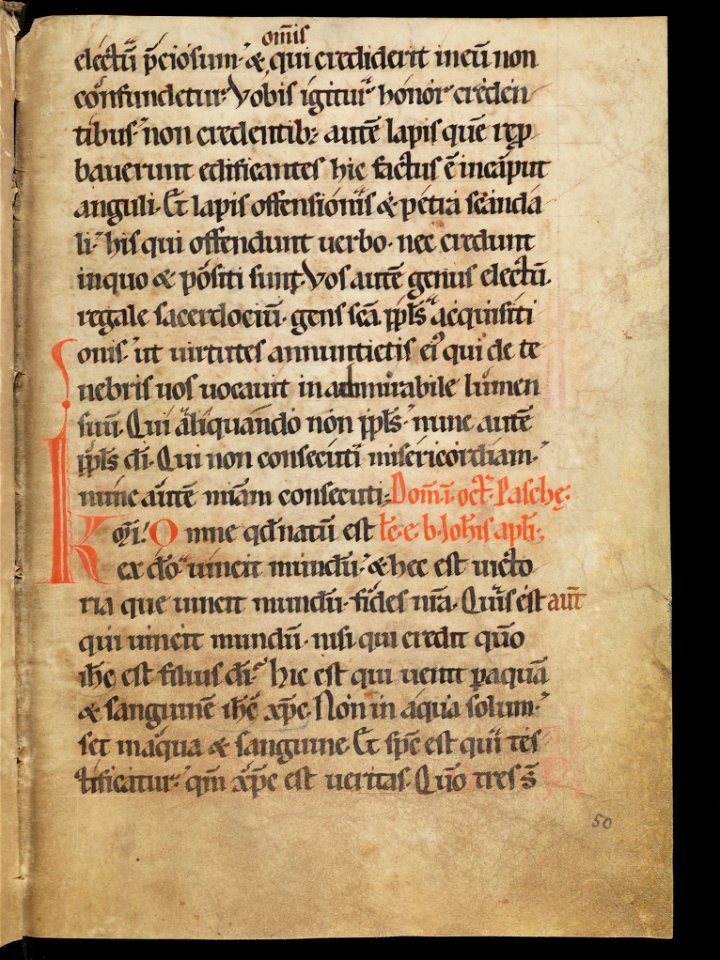 om̅is
electū p̄ciosum · & qui crediderit ineū non
confundetur · Vobis igitur honor creden
tibus · non credentib; autē lapis quē rep̱
bauerunt edificantes hic factus ē incaput
anguli · Et lapis offensionis & petra scanda
li · his qui offendunt uerbo · nec credunt
inquo & positi sunt · Vos autē genus electū ·
regale sacerdociū · gens sc̄a pp̄ls acquisiti
onis · ut uirtutes annuntietis ei᷒ qui de te
nebris uos uocauit inadmirabile lumen
suū · Qui aliquando non pp̄ls · nunc autē
pp̄ls dī · Qui non consecuti misericordiam ·
nunc autē mīam consecuti · Dom̄ · i · oct̄ · Paschę ·
Kmī · Omne qd̄ natū est łc̄ · e · b · Joh̄is apl̄i ·
ex dō · uincit mundū · & hec est uicto
ria que uincit mundū · fides nr̄a · Quis est aut̄
qui uincit mundū · nisi qui credit qūo
ih̄c est filius dī · Hic est qui uenit p̱ aquā
& sanguinē ih̄c xp̄c · Non in aqua solum ·
set inaqua & sanguine · Et sp̄c est qui tes
tificatur · qm̄ xp̄c est ueritas · Qūo tres s̄
50